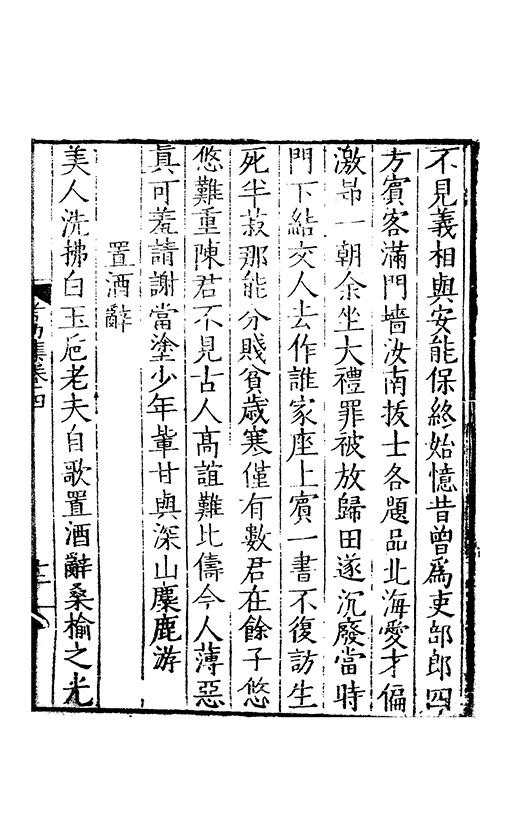 不見義相與安能保終始憶昔曾爲吏部郎四
方賓客滿門墻汝南拔士各題品北海愛才偏
激昻一朝余坐大禮罪被放歸田遂沉廢當時
門下結交人去作誰家座上賓一書不復訪生
死半菽那能分賤貧歲寒僅有數君在餘子悠
悠難重陳君不見古人高誼難比儔今人薄惡
眞可羞請謝當塗少年輩甘與深山麋鹿游
置酒辭
美人洗拂白玉巵老夫自歌置酒辭桑榆之光
集卷四